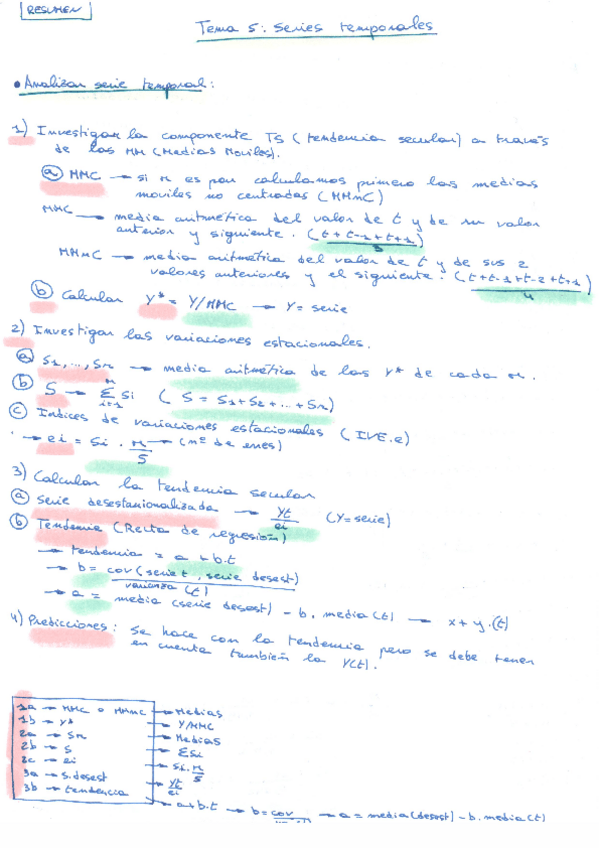 RESUMEN
Tema 5: Series temporales
• Analizar serie temporal:
1) Investigar la componente TS (tendencia secular) a través
de las MM (Medias Moviles).
a) MMC → si n es par calculamos primero las medias
moviles no centradas (MMnC)
MMC → media aritmética del valor de t y de su valor
anterior y siguiente. (t + t-1 + t+1 / 3)
MMnC → media aritmética del valor de t y de sus 2
valores anteriores y el siguiente. (t + t-1 + t-2 + t+1 / 4)
b) Calcular Y* = Y/MMC → Y = serie
2) Investigar las variaciones estacionales.
a) S1, ..., Sn → media aritmética de las Y* de cada n.
b) S → Σ Si (S = S1 + S2 + ... + Sn)
c) Indices de variaciones estacionales (IVE.e)
→ ei = Si · n/S → (nº de enes)
3) Calcular la tendencia secular
a) Serie desestacionalizada → Yt/ei (Y = serie)
b) Tendencia (Recta de regresión)
→ tendencia = a + b·t
→ b = cov (serie t, serie desest) / varianza (t)
→ a = media (serie desest) - b. media (t) → x + y.(t)
4) Predicciones: Se hace con la tendencia pero se debe tener
en cuenta también la Y(t).
1a → MMC o MMnC → Medias
1b → Y* → Y/MMC
2a → Sn → Medias
2b → S → ΣSi
2c → ei → Si. n/S
3a → s.desest → Yt/ei
3b → tendencia → a + b·t → b = cov → a = media (desest) - b. media (t)